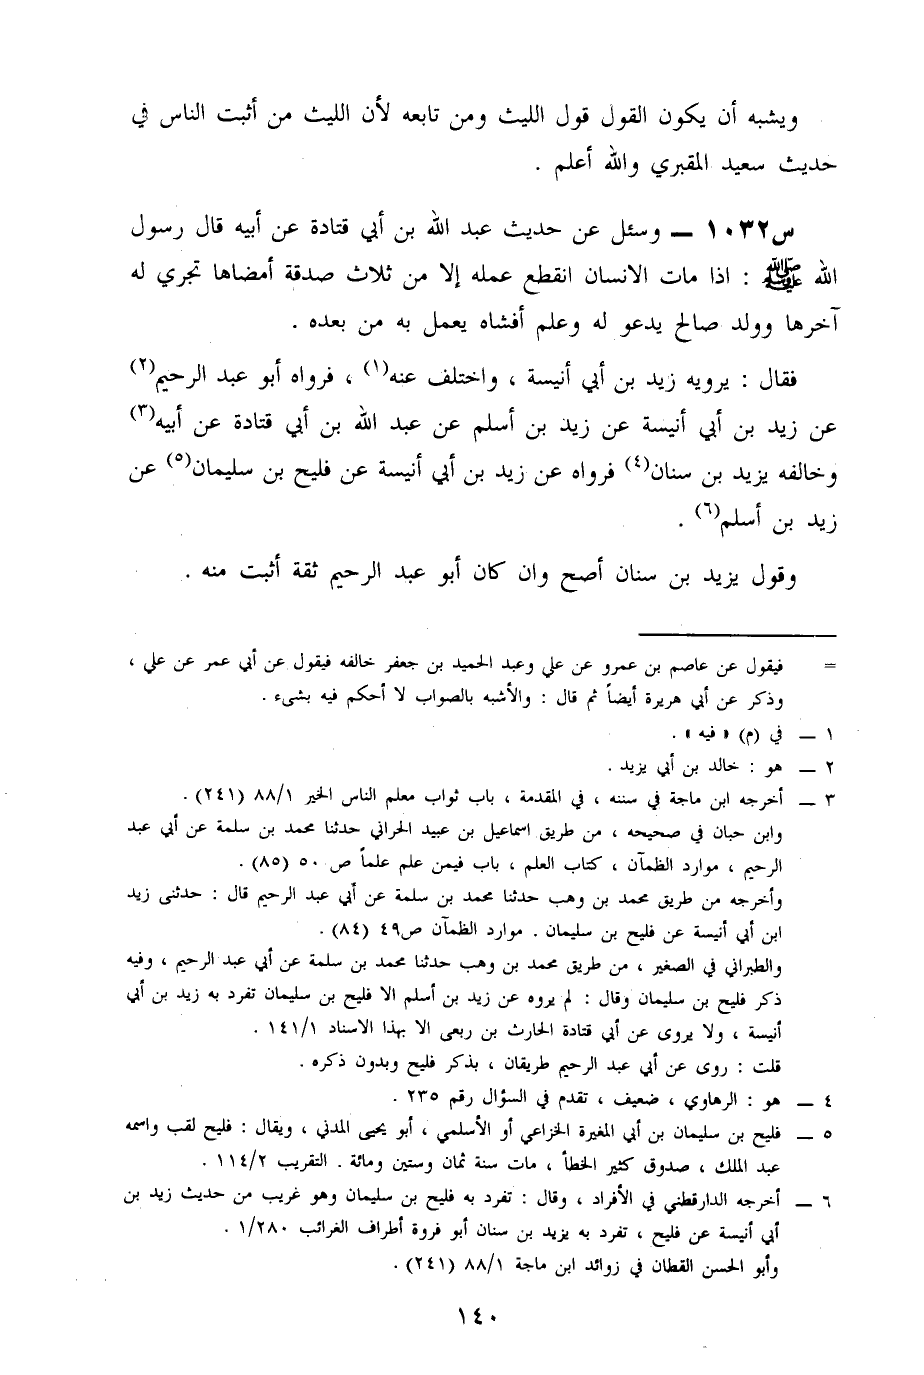 ويشبه أن يكون القول قول الليث ومن تابعه لأن الليث من أثبت الناس في
حديث سعيد المقبري والله أعلم .
س١٠٣٢ ــ وسئل عن حديث عبد الله بن أبي قتادة عن أبيه قال رسول
الله ﷺ : اذا مات الانسان انقطع عمله إلا من ثلاث صدقة أمضاها تجري له
آخرها وولد صالح يدعو له وعلم أفشاه يعمل به من بعده .
فقال : يرويه زيد بن أبي أنيسة ، واختلف عنه(١) ، فرواه أبو عبد الرحيم(٢)
عن زيد بن أبي أنيسة عن زيد بن أسلم عن عبد الله بن أبي قتادة عن أبيه(٣)
وخالفه يزيد بن سنان(٤) فرواه عن زيد بن أبي أنيسة عن فليح بن سليمان(٥) عن
زيد بن أسلم(٦) .
وقول يزيد بن سنان أصح وان كان أبو عبد الرحيم ثقة أثبت منه .
= فيقول عن عاصم بن عمرو عن علي وعبد الحميد بن جعفر خالفه فيقول عن أبي عمر عن علي ،
وذكر عن أبي هريرة أيضاً ثم قال : والأشبه بالصواب لا أحكم فيه بشىء .
١ ــ في (م) « فيه » .
٢ ــ هو : خالد بن أبي يزيد .
٣ ــ أخرجه ابن ماجة في سننه ، في المقدمة ، باب ثواب معلم الناس الخير ٨٨/١ (٢٤١) .
وابن حبان في صحيحه ، من طريق اسماعيل بن عبيد الحراني حدثنا محمد بن سلمة عن أبي عبد
الرحيم ، موارد الظمآن ، كتاب العلم ، باب فيمن علم علماً ص ٥٠ (٨٥) .
وأخرجه من طريق محمد بن وهب حدثنا محمد بن سلمة عن أبي عبد الرحيم قال : حدثنى زيد
ابن أبي أنيسة عن فليح بن سليمان . موارد الظمآن ص٤٩ (٨٤) .
والطبراني في الصغير ، من طريق محمد بن وهب حدثنا محمد بن سلمة عن أبي عبد الرحيم ، وفيه
ذكر فليح بن سليمان وقال : لم يروه عن زيد بن أسلم الا فليح بن سليمان تفرد به زيد بن أبي
أنيسة ، ولا يروى عن أبي قتادة الحارث بن ربعى الا بهذا الاسناد ١٤١/١ .
قلت : روى عن أبي عبد الرحيم طريقان ، بذكر فليح وبدون ذكره .
٤ ــ هو : الرهاوي ، ضعيف ، تقدم في السؤال رقم ٢٣٥ .
٥ ــ فليح بن سليمان بن أبي المغيرة الخزاعي أو الأسلمي ، أبو يحيى المدني ، ويقال : فليح لقب واسمه
عبد الملك ، صدوق كثير الخطأ ، مات سنة ثمان وستين ومائة . التقريب ١١٤/٢ .
٦ ــ أخرجه الدارقطني في الأفراد ، وقال : تفرد به فليح بن سليمان وهو غريب من حديث زيد بن
أبي أنيسة عن فليح ، تفرد به يزيد بن سنان أبو فروة أطراف الغرائب ١/٢٨٠ .
وأبو الحسن القطان في زوائد ابن ماجة ٨٨/١ (٢٤١) .
١٤٠